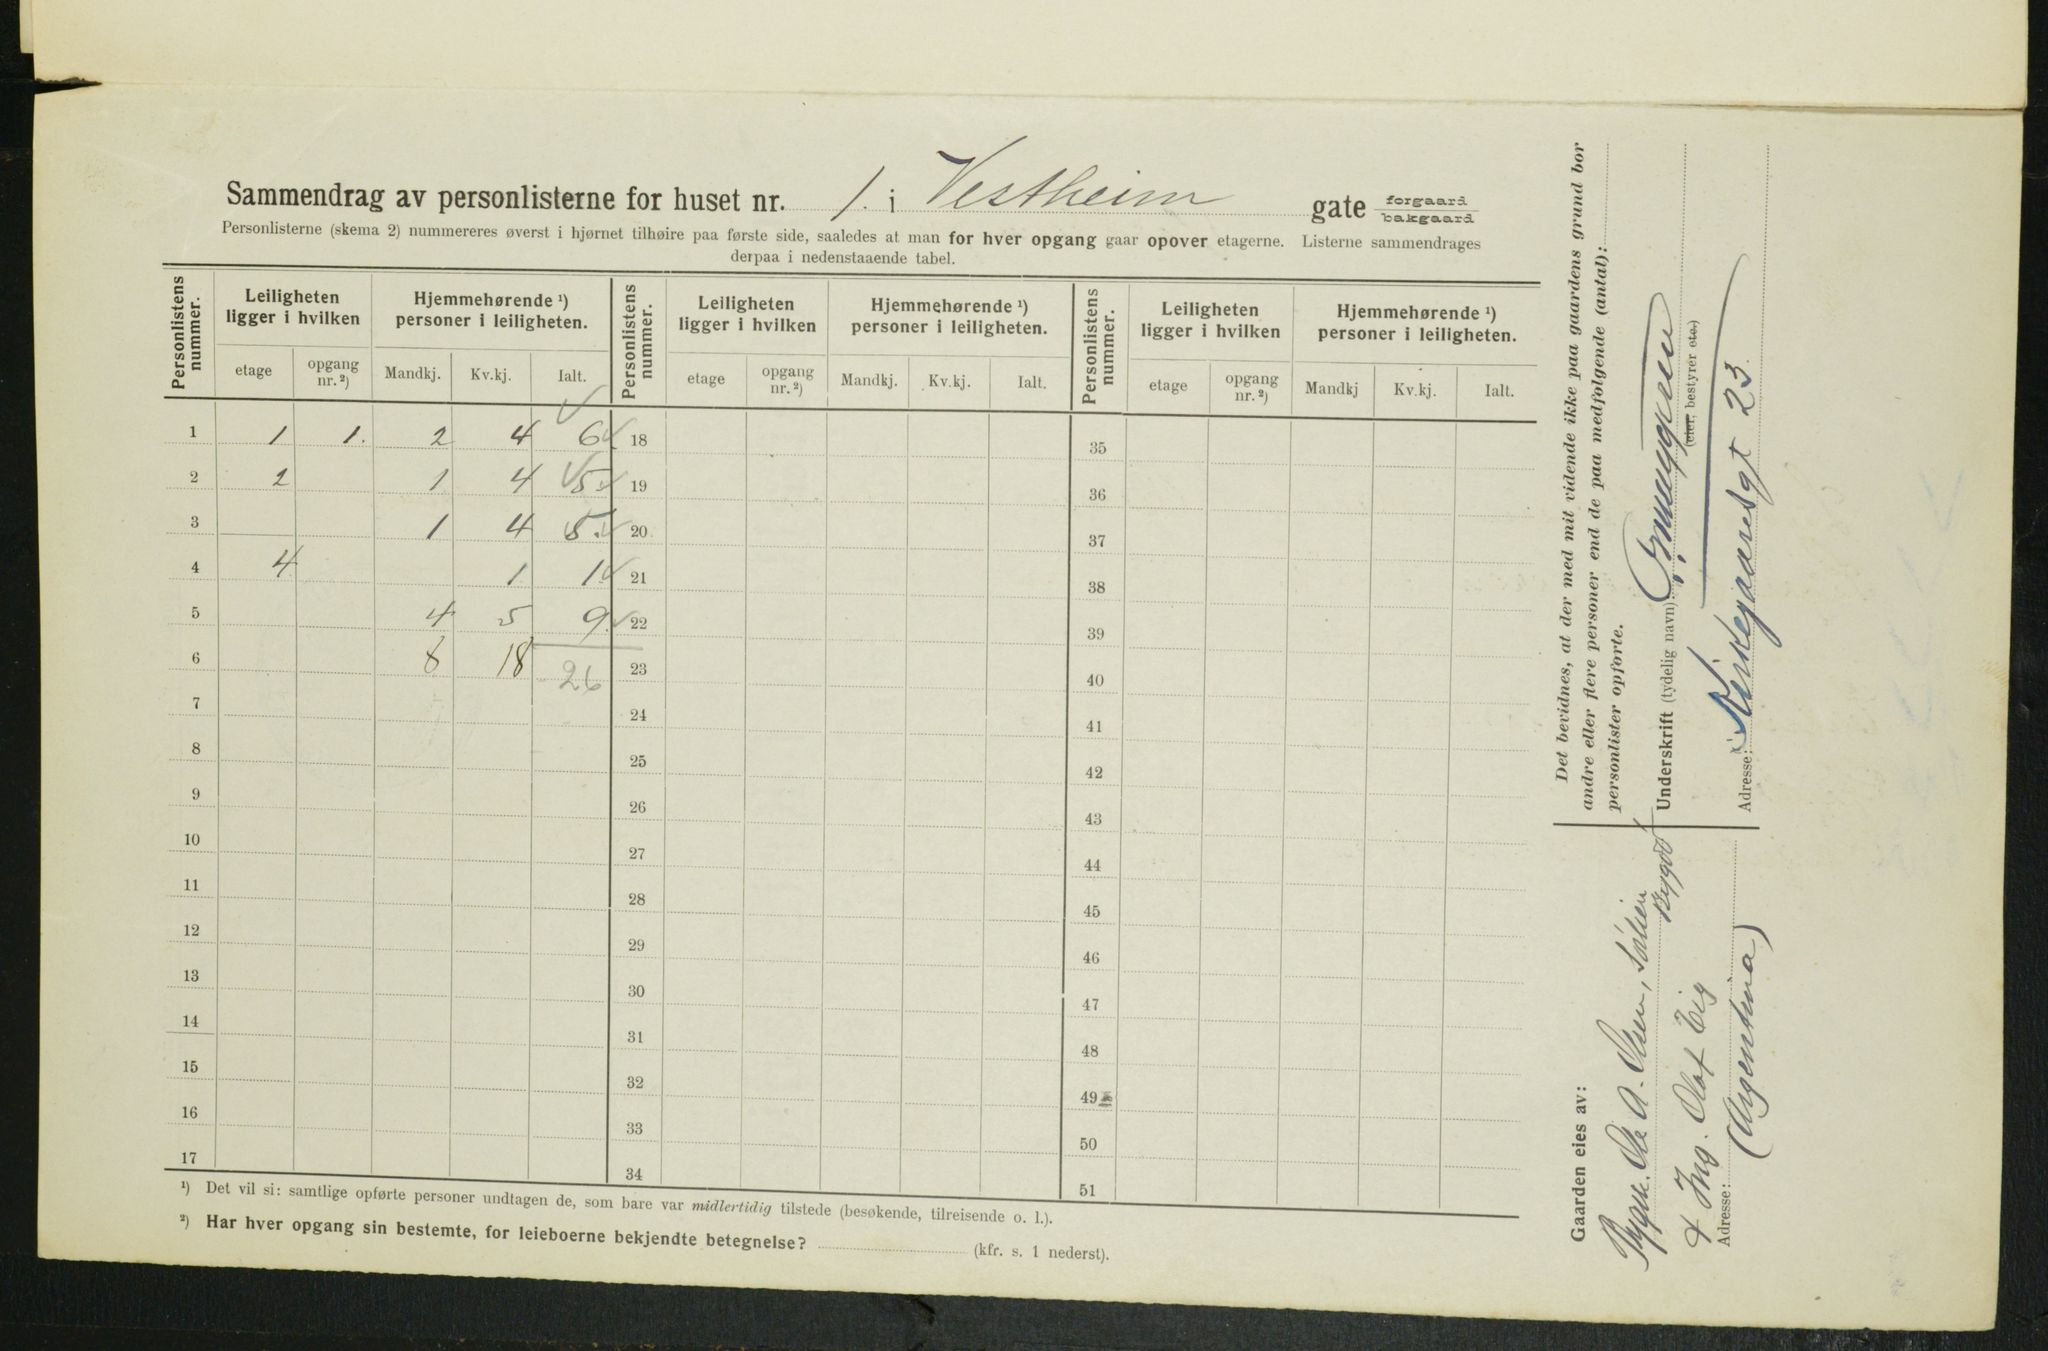 Sammendrag av personlisterne for huset nr. 1. i Vestheim gate forgaard bakgaard
Personlisterne (skema 2) nummereres øverst i hjørnet tilhøire paa første side, saaledes at man for hver opgang gaar opover etagerne. Listerne sammendrages
derpaa i nedenstaaende tabel.
Personlistens nummer. Leiligheten ligger i hvilken Hjemmehørende ¹) personer i leiligheten. Personlistens nummer. Leiligheten ligger i hvilken Hjemmehørende ¹) personer i leiligheten. Personlistens nummer. Leiligheten ligger i hvilken Hjemmehørende ¹) personer i leiligheten.
etage opgang nr. ²) Mandkj. Kv.kj. Ialt. etage opgang nr. ²) Mandkj. Kv.kj. Ialt. etage opgang nr. ²) Mandkj Kv.kj. Ialt.
1 1 1. 2 4 6 18 35
2 2 1 4 5. 19 36
3 1 4 5. 20 37
4 4 1 1 21 38
5 4 5 9. 22 39
6 8 18 26 23 40
7 24 41
8 25 42
9 26 43
10 27 44
11 28 45
12 29 46
13 30 47
14 31 48
15 32 49
16 33 50
17 34 51
¹) Det vil si: samtlige opførte personer undtagen de, som bare var midlertidig tilstede (besøkende, tilreisende o. l.).
²) Har hver opgang sin bestemte, for leieboerne bekjendte betegnelse? (kfr. s. 1 nederst).
Det bevidnes, at der med mit vidende ikke paa gaardens grund bor
andre eller flere personer end de paa medfolgende (antal):
personlister opforte.
Underskrift (tydelig navn):
(eier, bestyrer etc.)
Adresse: Kirkegaardsgt 23.
Gaarden eies av:
Bygm. Ole A. Olsen, Solveien
Bygdø
& Ing. Olaf Eig
Adresse: (Argentina)